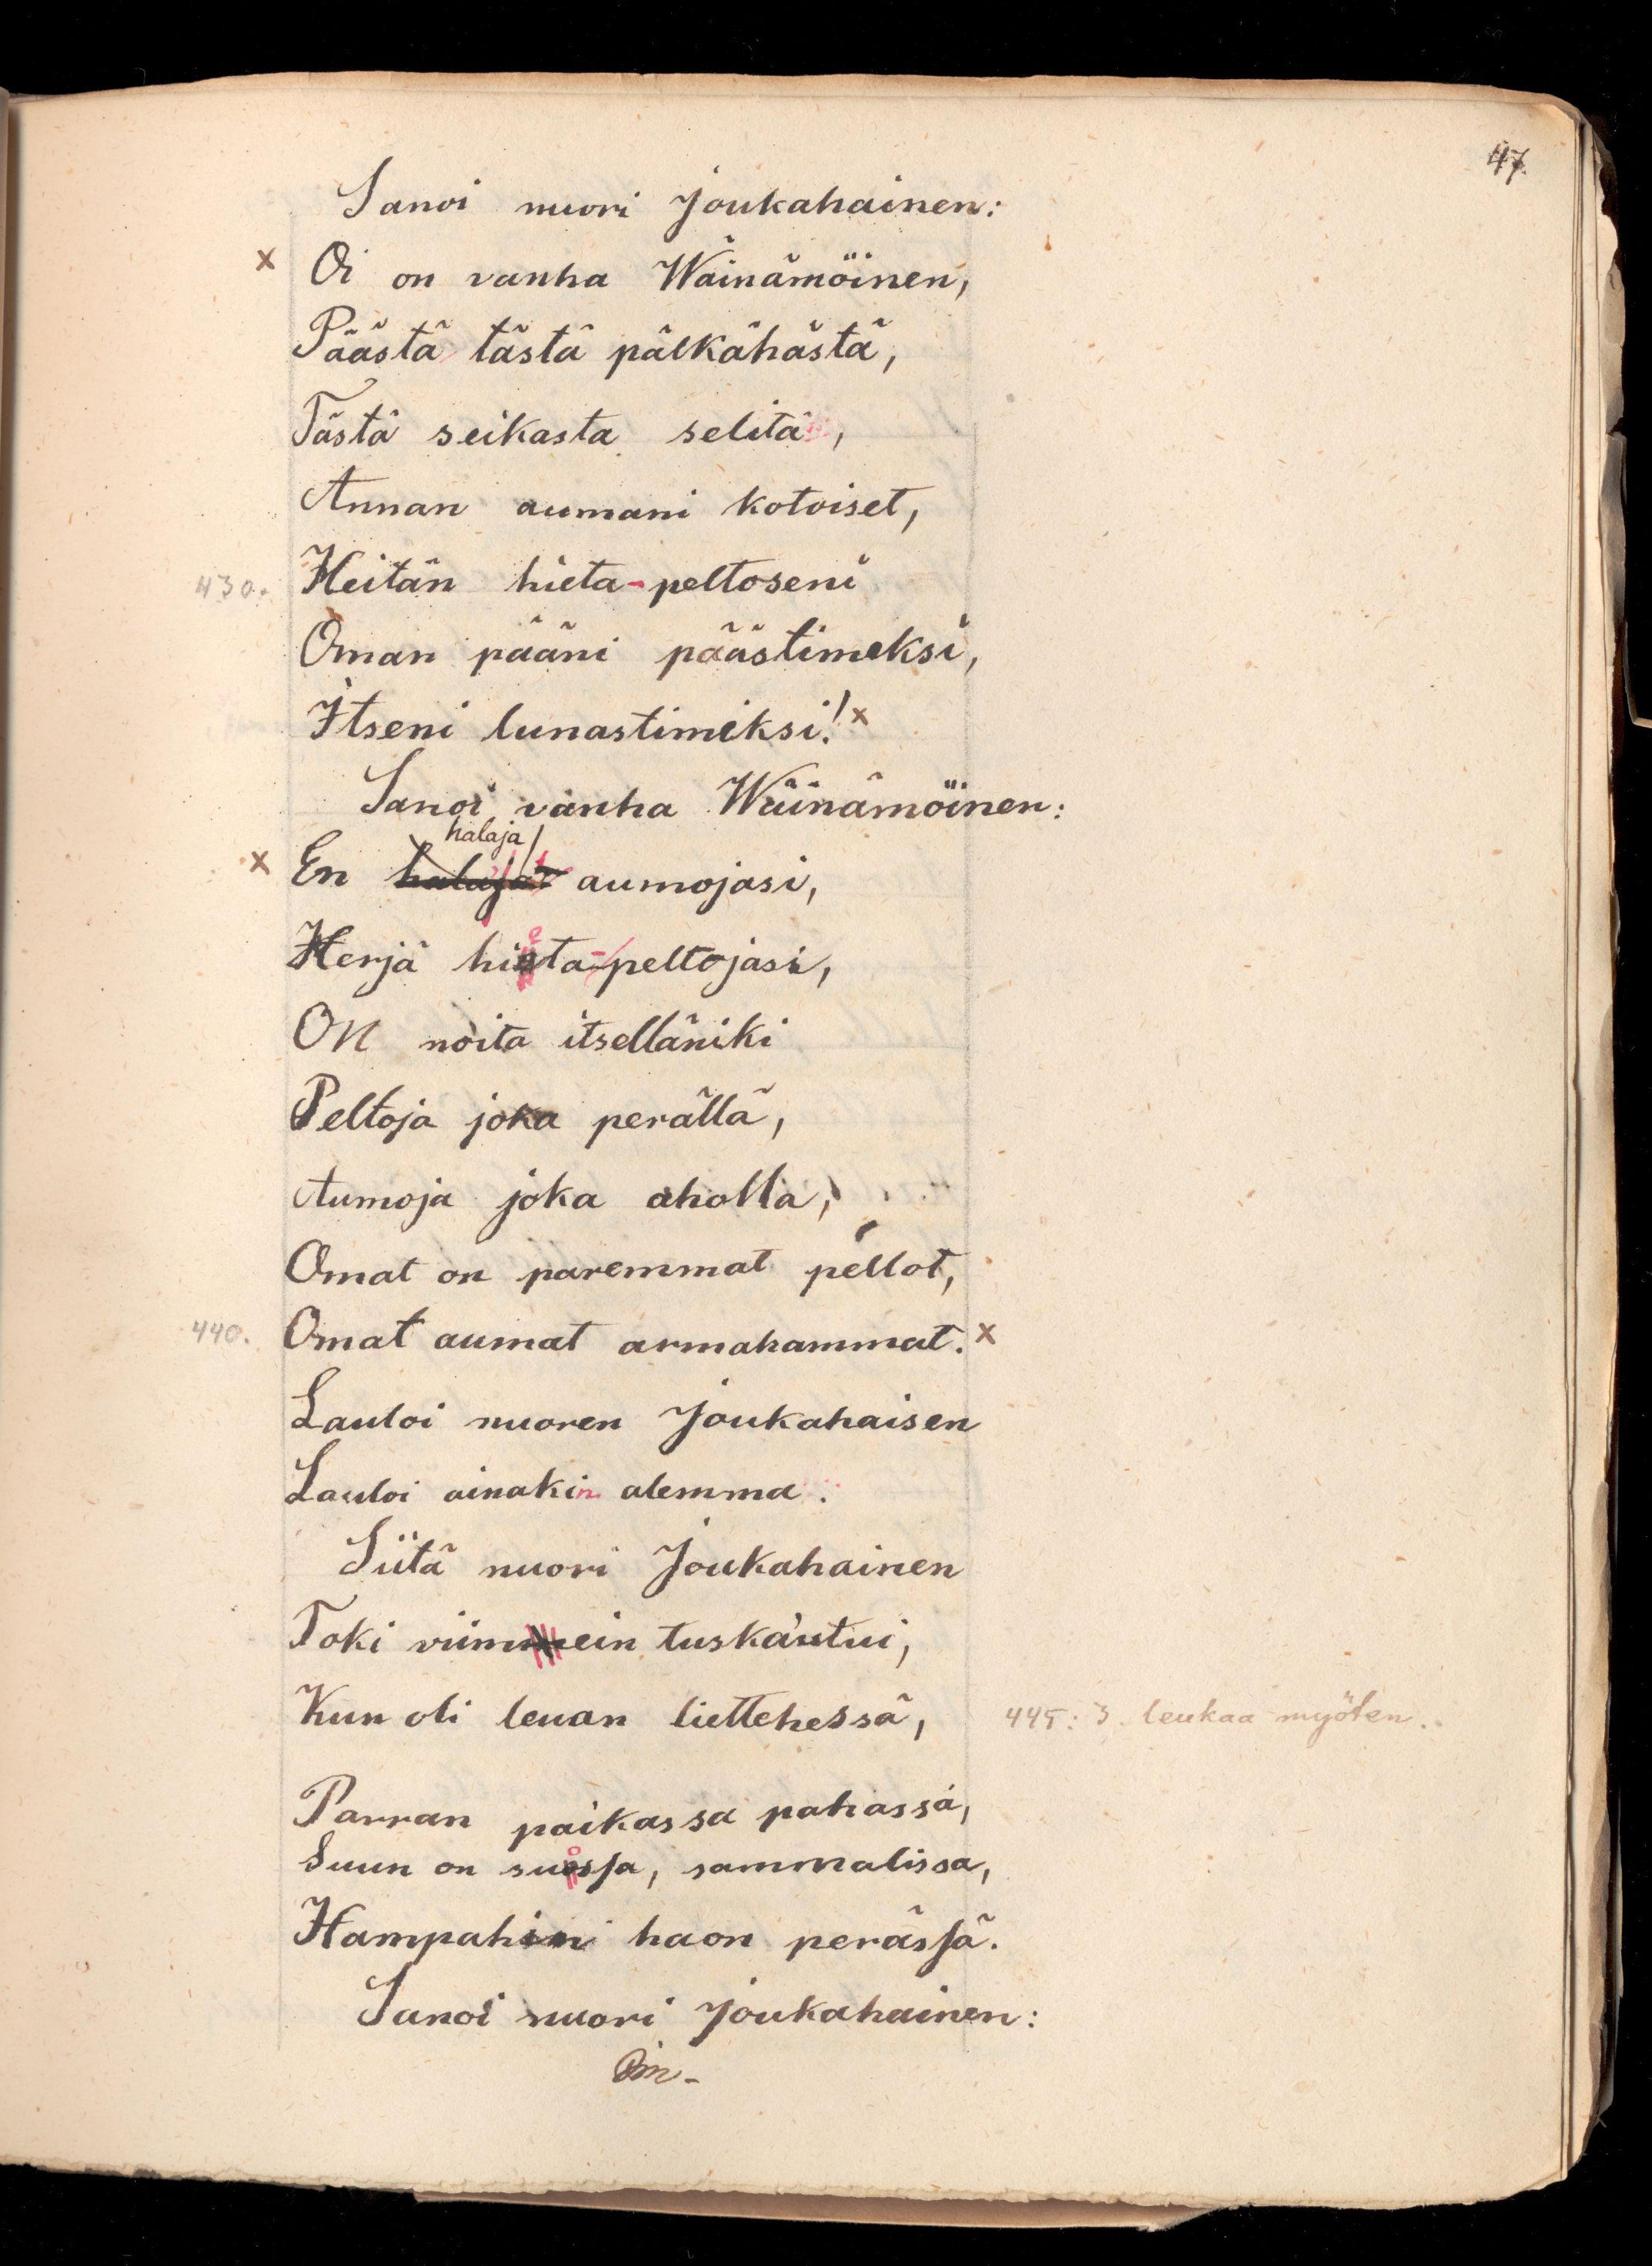 47.
Sanoi nuori Joukahainen:
x Oi on vanha Wäinämöinen,
Päästä tästä pälkähästä,
Tästä seikasta selitä,
Annan aumani kotoiset,
430. Heitän hieta-peltoseni
Oman pääni päästimeksi,
Itseni lunastimeksi! x
Sanoi vanha Wäinämöinen:
halaja
x En halaja aumojasi,
Herjä hieta-peltojasi,
On noita itselläniki
Peltoja joka perällä,
Aumoja joka aholla,
Omat on paremmat pellot,
440. Omat aumat armahammat. x
Lauloi nuoren Joukahaisen
Lauloi ainakin alemma.
Siitä nuori Joukahainen
Toki viimein tuskautui,
Kun oli leuan liettehessä, 445: 3. leukaa myöten.
Parran paikassa pahassa,
Suun on suossa, sammalissa,
Hampahin haon perässä.
Sanoi nuori Joukahainen: